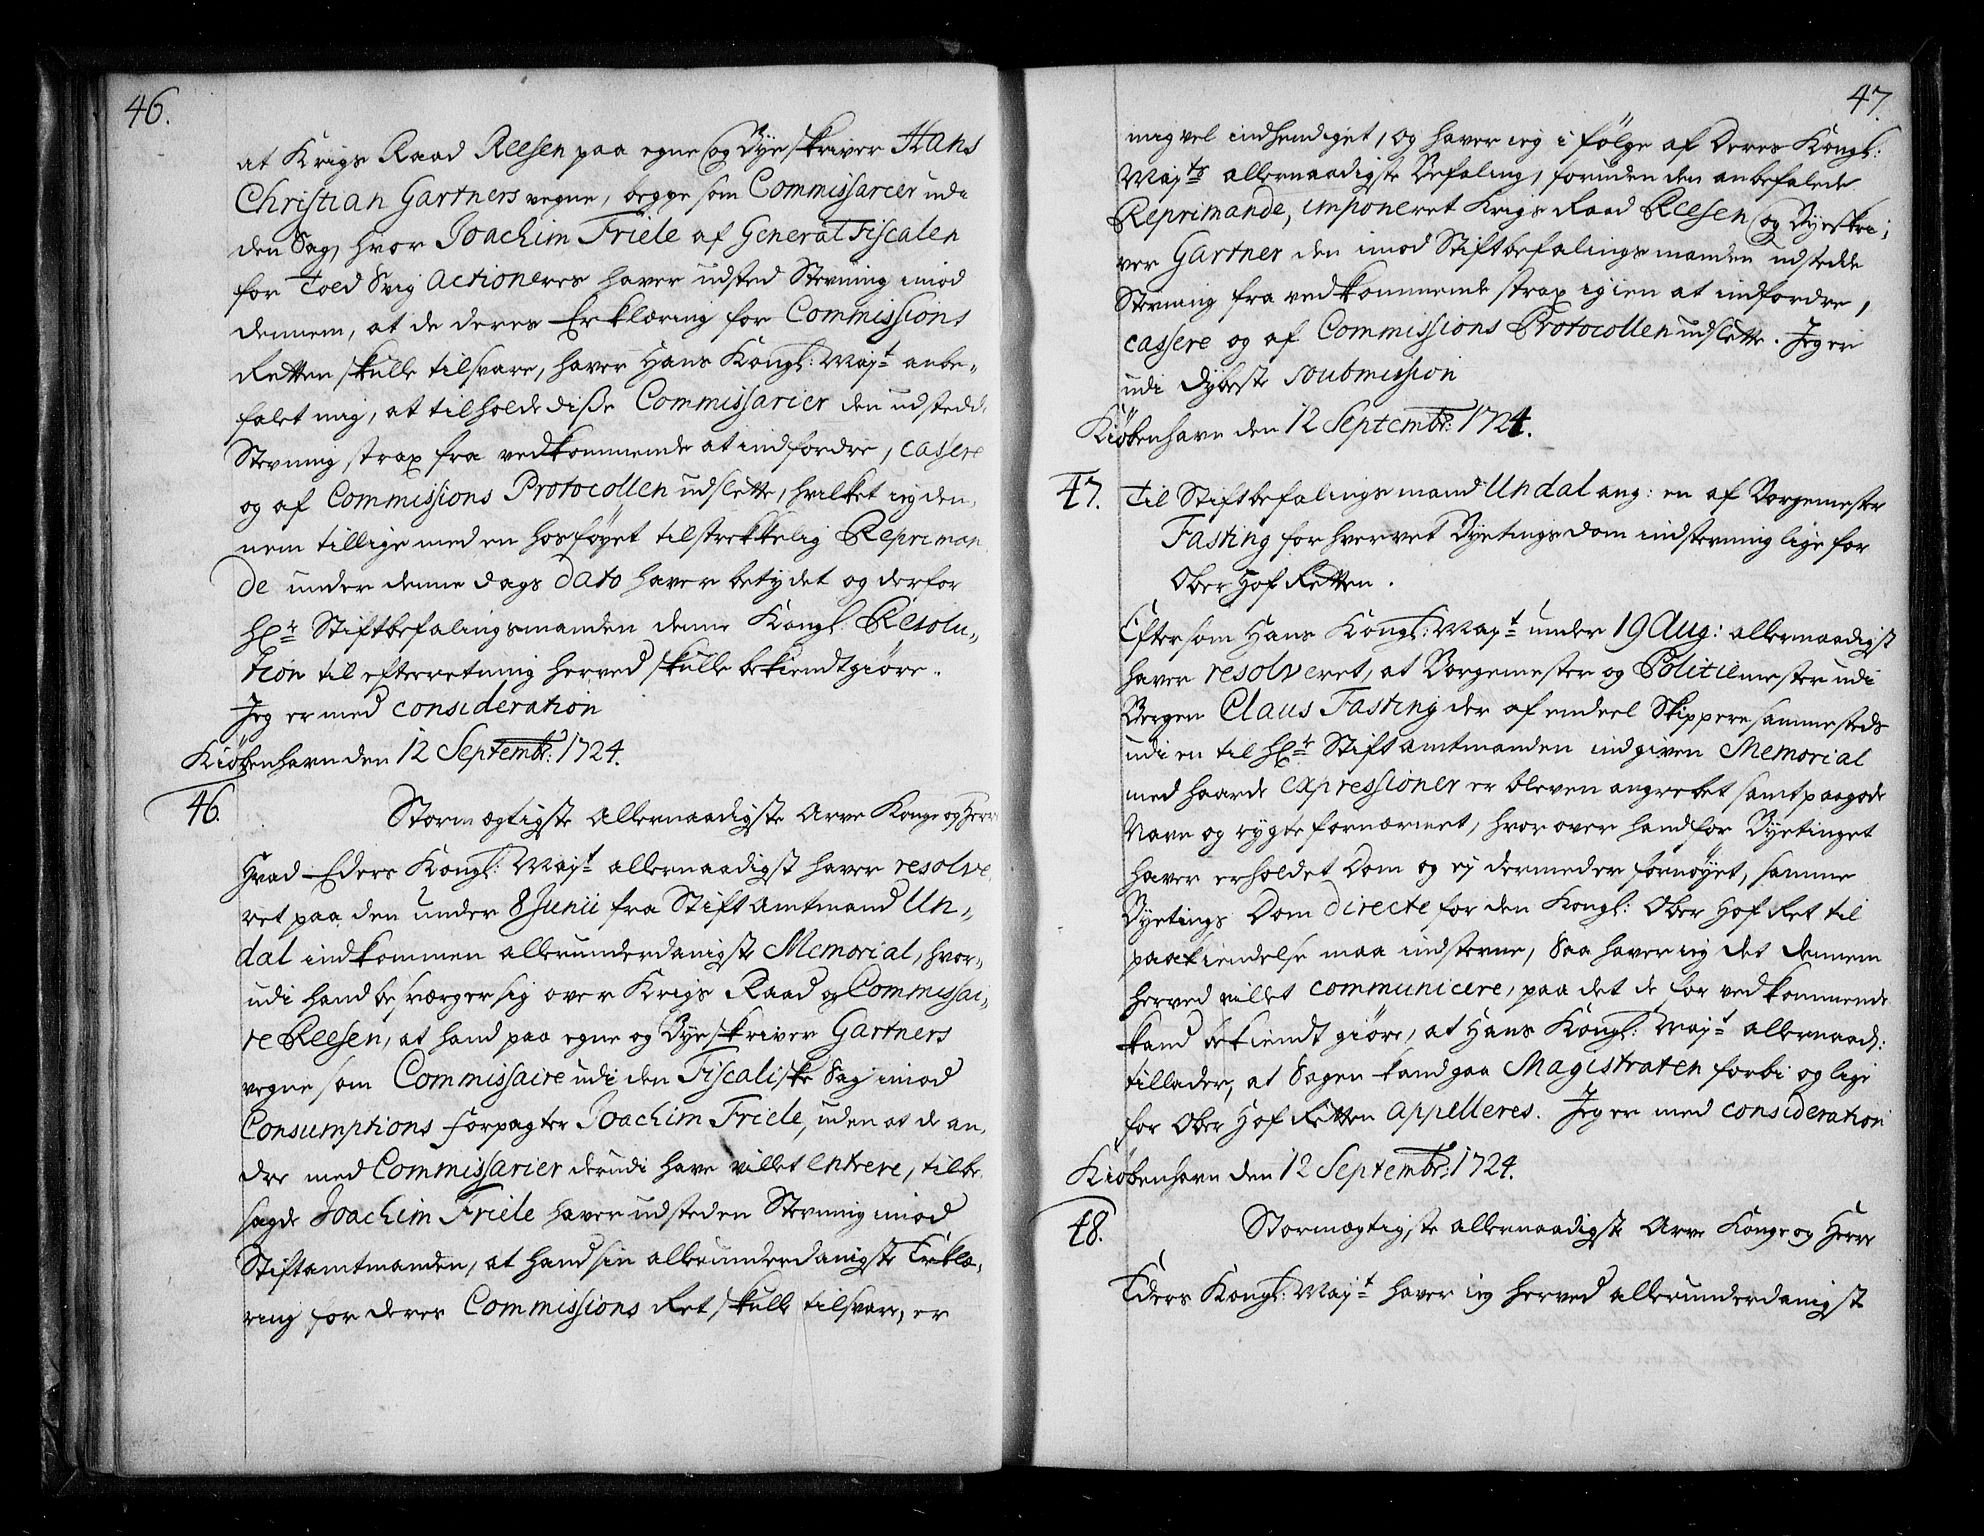 46.
at Krigs Raad Reesen paa egne og Byeskriver Hans
Christian Gartners vegne, begge som Commissarier udi
den Sag, hvor Joachim Friele af General Fiscalen
for Told Svig actioneres haver udsted Stevning imod
dennem, at de deres Erklæring for Commissions
Retten skulle tilsvare, haver Hans Kongl: Mayt anbe-
falet mig, at tilholde disse Commissarier den udstedde
Stevning strax fra vedkommende at indfordre, cassere
og af Commissions Protocollen udslette, hvilket ieg den-
nem tillige med en hosføyet tilstrekkelig Repriman-
de under denne dags dato haver betydet og derfor
Hr Stiftbefalingsmanden denne Kongl: Resolu-
tion til efterretning herved skulle bekiendtgiøre.
Jeg er med consideration
Kiøbenhavn den 12 Septembr: 1724.
46. Stormægtigste Allernaadigste Arve Konge og Herre
Hvad Eders Kongl: Mayt allernaadigst haver resolve-
ret paa den under 8 Junii fra Stiftamtmand Un-
dal indkommen allerunderdanigste Memorial, hvor-
udi hand besværger sig over Krigs Raad og Commissai-
re Reesen, at hand paa egne og Byeskriver Gartners
vegne som Commissaire udi den Fiscaliske Sag imod
Consumptions Forpagter Joachim Friele, uden at de an-
dre med Commissarier derudi have villet entrere, til be-
sagde Joachim Friele haver udsteden Stevning imod
Stiftamtmanden, at hand sin allerunderdanigste Erklæ-
ring for deres Commissions Ret skulle tilsvare, er
47.
mig vel indhendiget, og haver ieg i følge af Deres Kongl:
Mayts allernaadigste Befaling, foruden den anbefalede
Reprimande, imponeret Krigs Raad Reesen og Byeskri-
ver Gartner den imod Stiftbefalingsmanden udstedde
Stevning fra vedkommende strax igien at indfordre,
cassere og af Commissions Protocollen udslette. Jeg er
udi dybeste soubmission
Kiøbenhavn den 12 Septembr: 1724.
47. Til Stiftbefalingsmand Undal ang: en af Borgemester
Fasting forhvervet Byetings dom indstevning lige for
Ober Hof Retten.
Eftersom Hans Kongl: Mayt under 19 Aug: allernaadigst
haver resolveret, at Borgemester og Politiemester udi
Bergen Claus Fasting der af endeel Skippere sammesteds
udi en til Hr Stiftamtmanden indgiven Memorial
med haarde expressioner er bleven angrebet samt paa gode
Navn og rygte fornærmet, hvor over hand for Byetinget
haver erholdet Dom og ey dermed er fornøyet, samme
Byetings Dom directe for den Kongl: Ober Hof Ret til
paakiendelse maa indstevne, Saa haver ieg det dennem
herved villet communicere, paa det de for vedkommende
kand bekiendt giøre, at Hans Kongl: Mayt allernaad:
tillader, at Sagen kand gaa Magistraten forbi og lige
for Ober Hof Retten appelleres. Jeg er med consideration
Kiøbenhavn den 12 Septembr: 1724.
48. Stormægtigste allernaadigste Arve Konge og Herre
Eders Kongl: Mayt haver ieg herved allerunderdanigst